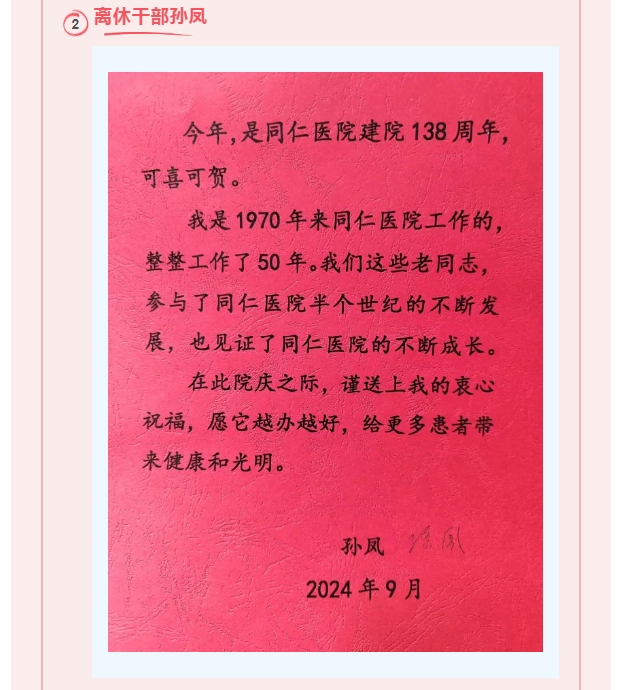 2 离休干部孙凤
今年,是同仁医院建院138周年,
可喜可贺。
我是1970年来同仁医院工作的,
整整工作了50年。我们这些老同志,
参与了同仁医院半个世纪的不断发
展,也见证了同仁医院的不断成长。
在此院庆之际,谨送上我的衷心
祝福,愿它越办越好,给更多患者带
来健康和光明。
孙凤 孙凤
2024年9月